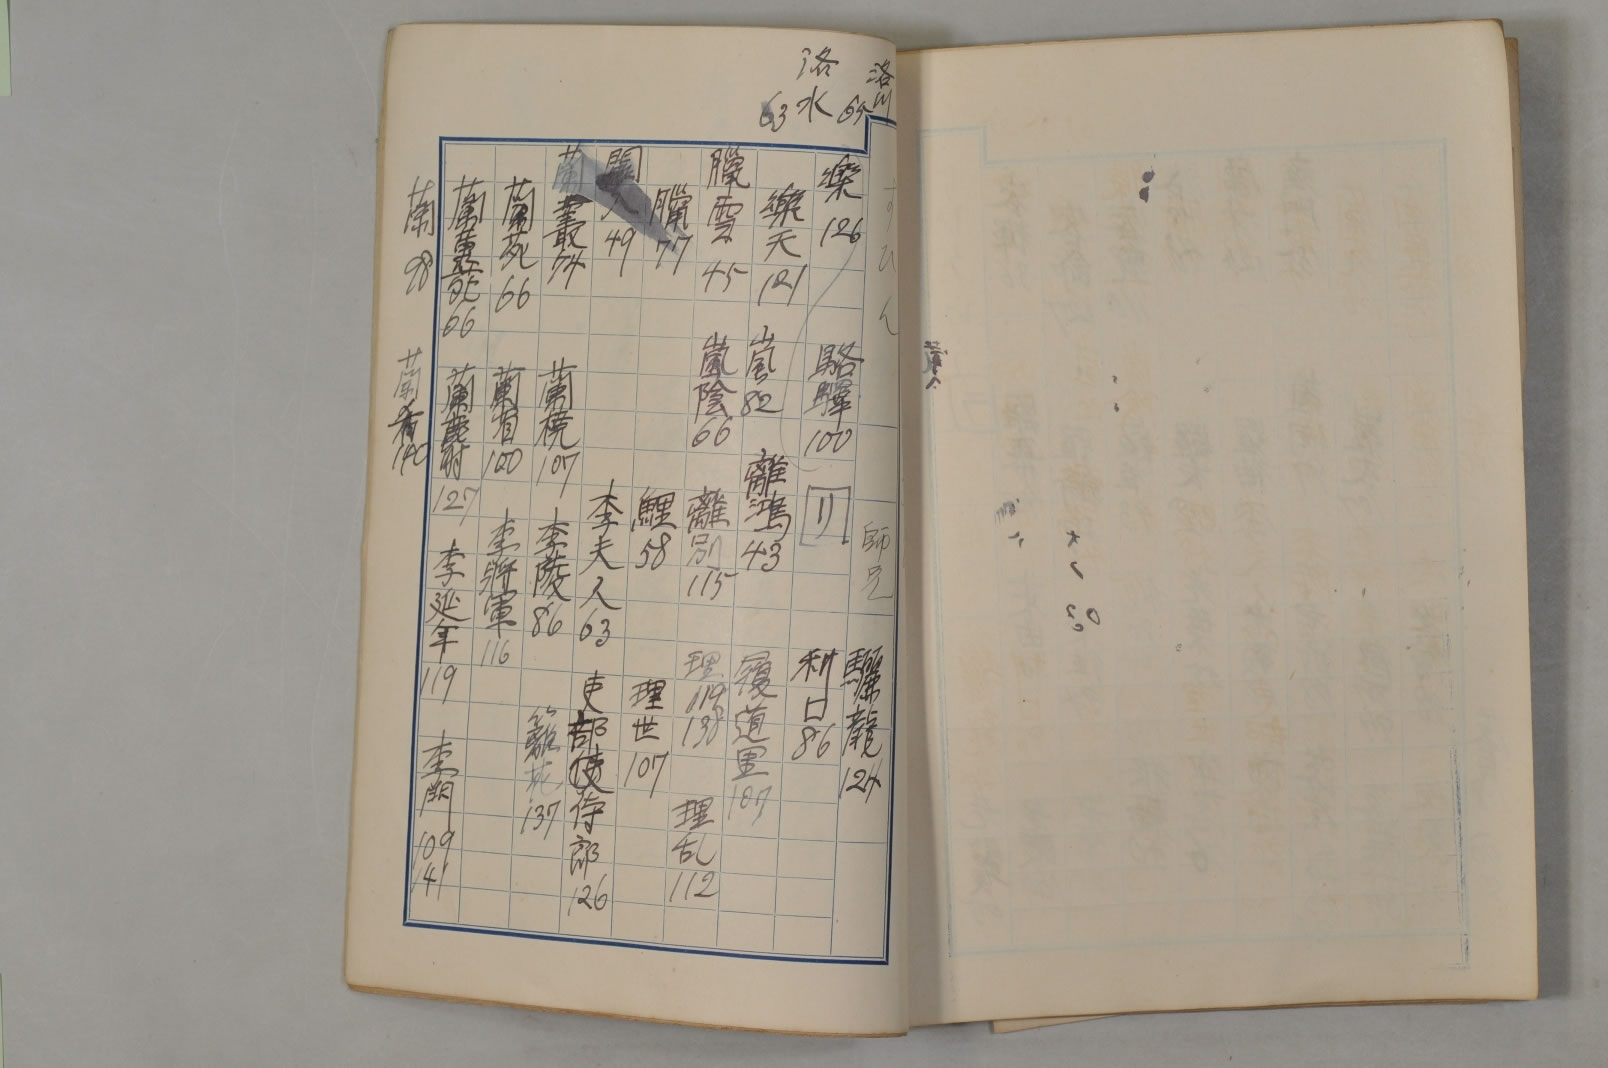 洛川 65
洛水 63
樂 126
樂天 121
臘雲 45
臘 77
49
蘭叢 74
蘭苑 66
蘭蕙苑 66
蘭 98
駱驛 100
嵐 82
嵐陰 66
蘭橈 107
蘭省 100
蘭麝 127
蘭肴 140
リ
離鴻 43
離別 115
鯉 58
李夫人 63
李陵 86
李將軍 116
李延年 119
驪龍 124
利口 86
履道里 107
理 119 138
理世 107
理乱 112
吏部侍郎 126
籬 137
李 109 141